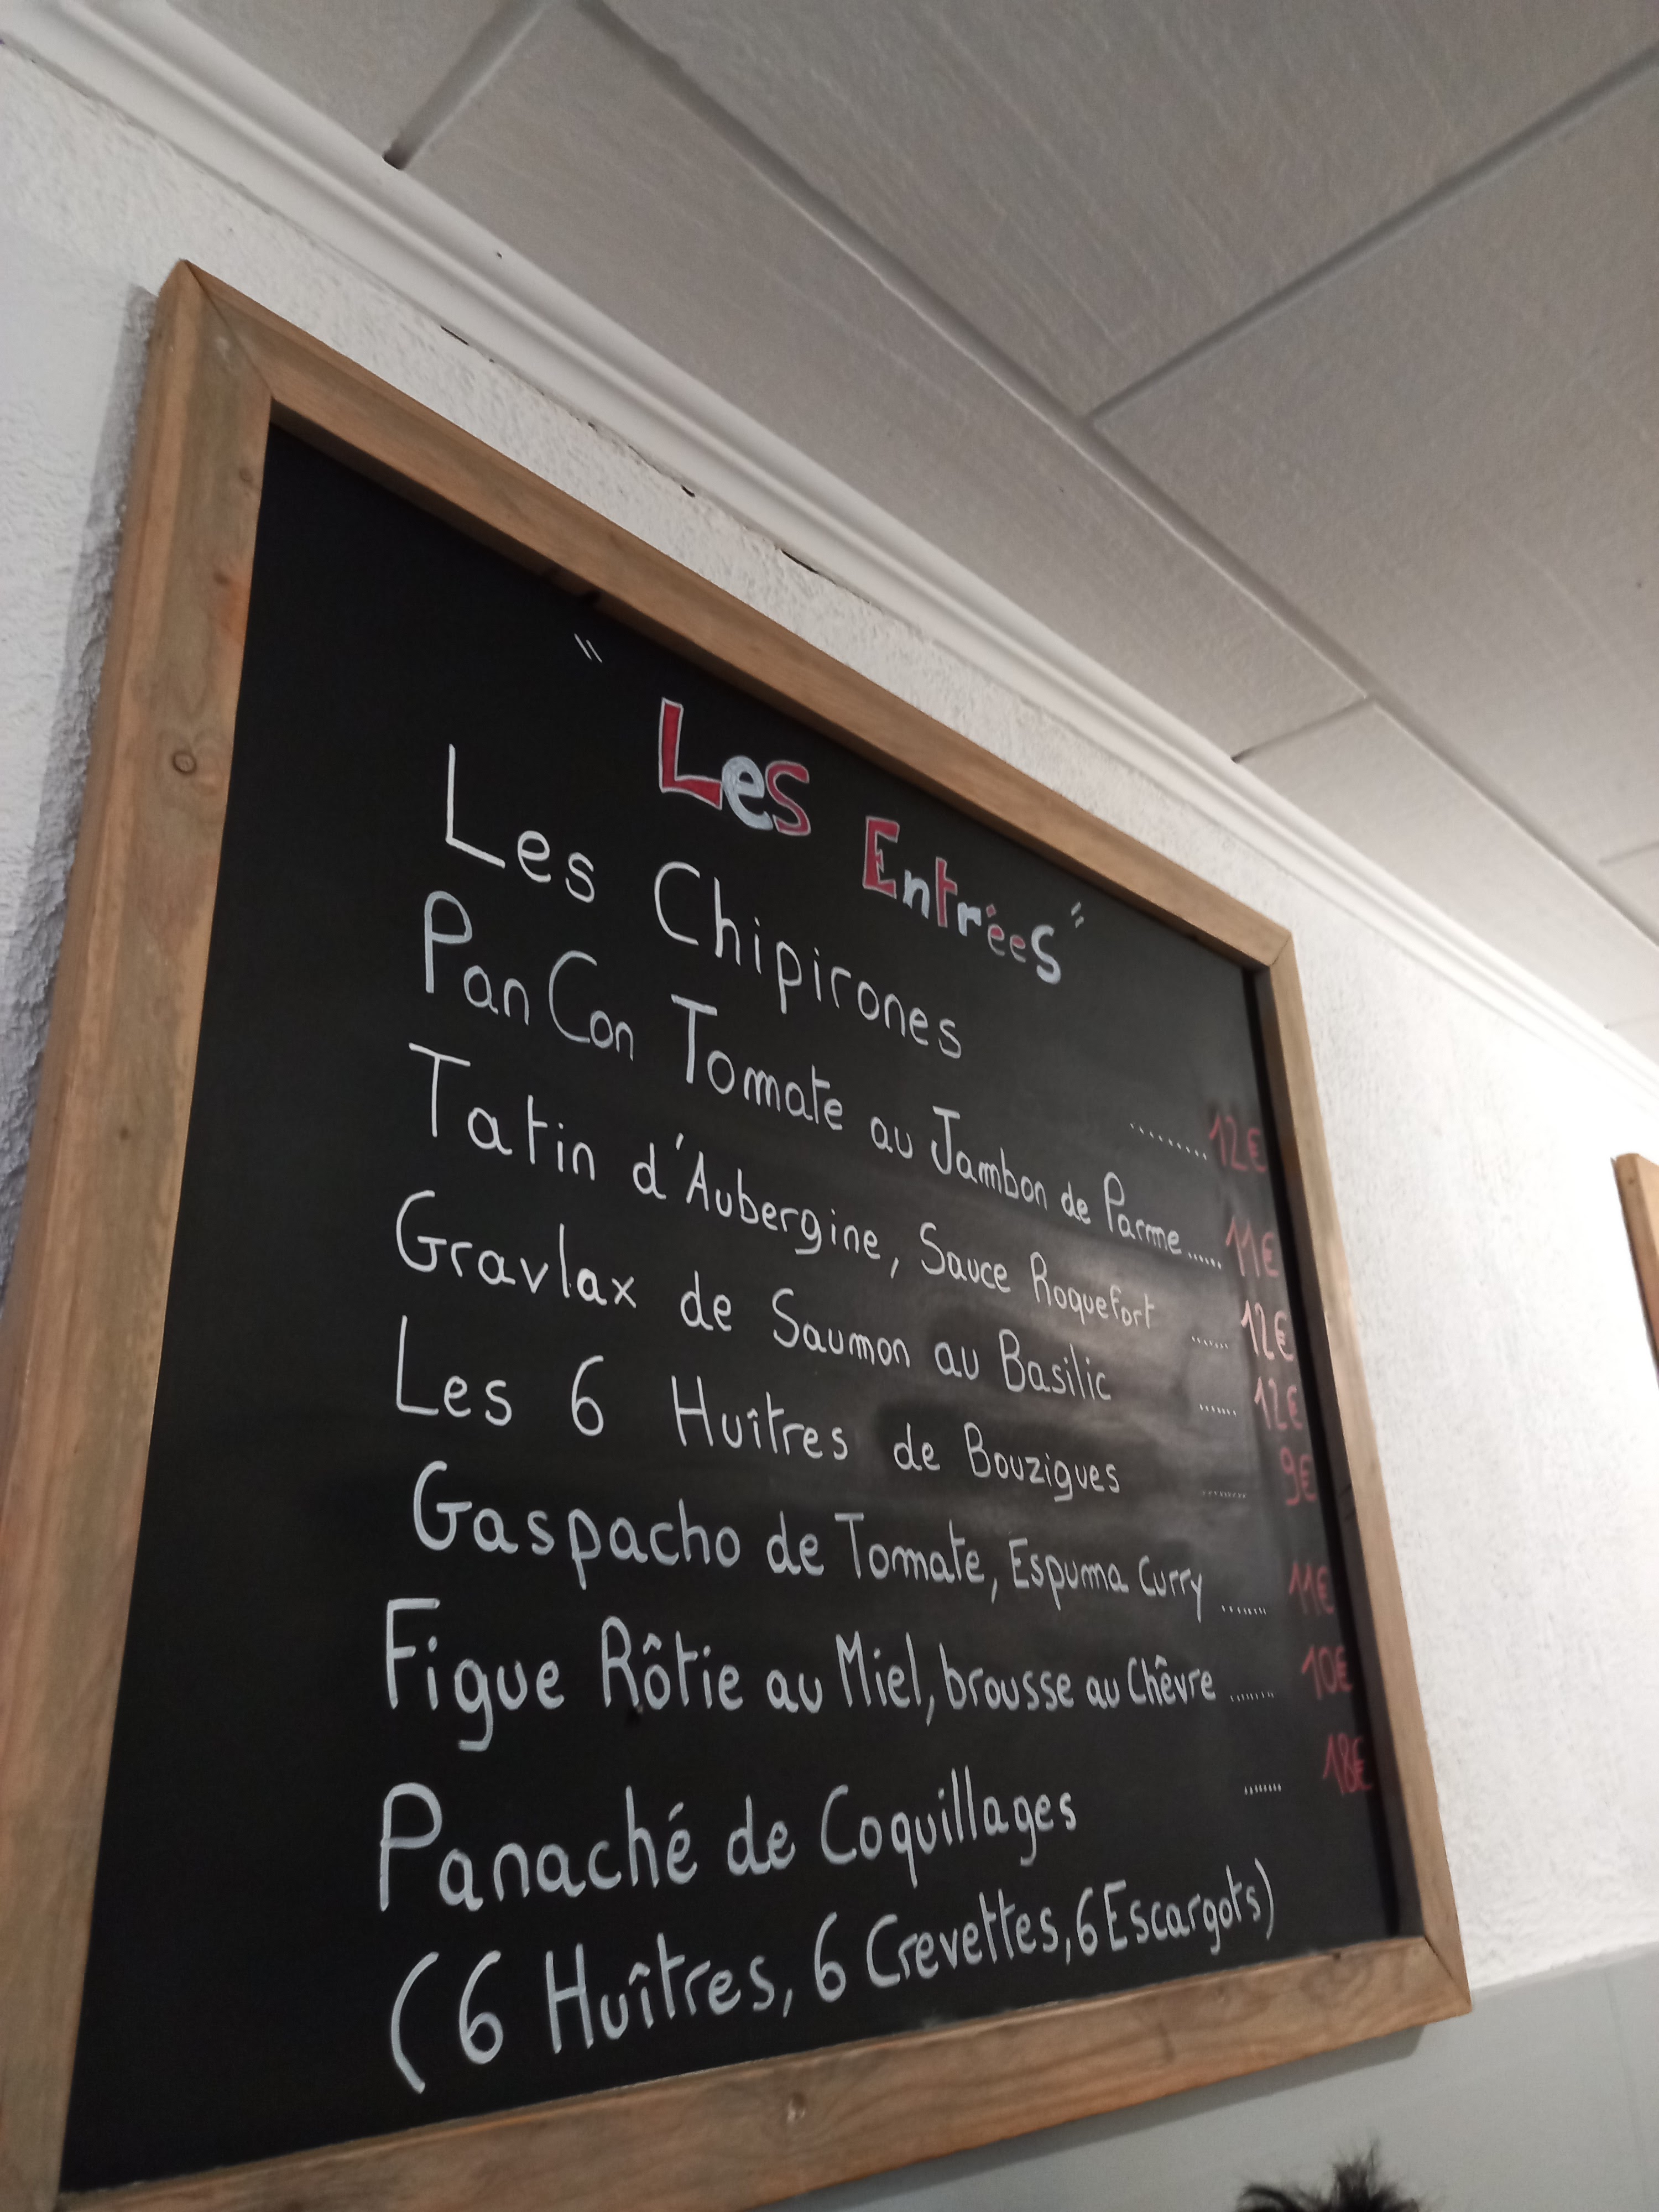 " Les Entrées "
Les Chipirones ........ 12€
Pan Con Tomate au Jambon de Parme ...... 11€
Tatin d'Aubergine, Sauce Roquefort ...... 12€
Gravlax de Saumon au Basilic ....... 12€
Les 6 Huîtres de Bouzigues ........ 9€
Gaspacho de Tomate, Espuma Curry ....... 11€
Figue Rôtie au Miel, brousse au Chêvre ........ 10€
Panaché de Coquillages ....... 18€
(6 Huîtres, 6 Crevettes, 6 Escargots)